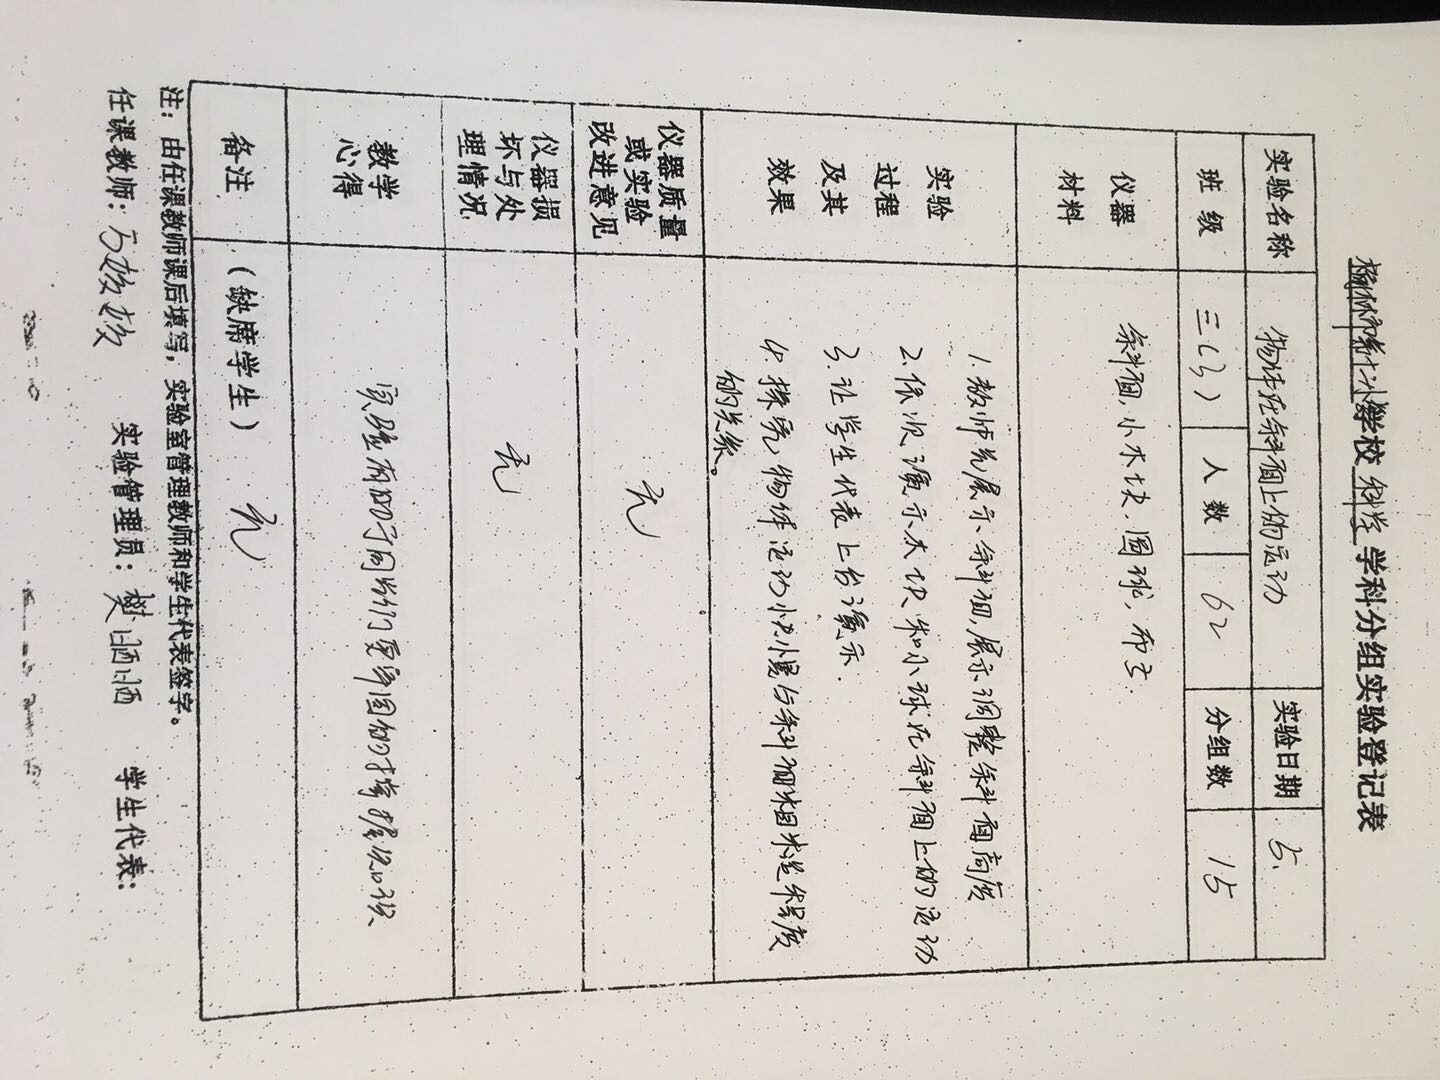 榆林市第十二小学校 科学 学科分组实验登记表
实验名称 物体在斜面上的运动 实验日期 5.
班级 三(3) 人数 62 分组数 15
仪器
材料
斜面,小木块.圆球,布子.
实验
过程
及其
效果
1.教师先展示斜面,展示调整斜面高度
2.依次演示木块和小球在斜面上的运动
3.让学生代表上台演示.
4.探究物体运动 与斜面粗糙程度
的关系。
仪器质量
或实验
改进意见
无
仪器损
坏与处
理情况
无
教学
心得
实验有助于同学们更牢固的掌握知识
备注 (缺席学生) 无
注:由任课教师课后填写,实验室管理教师和学生代表签字。
任课教师: 实验管理员:樊晒晒 学生代表: